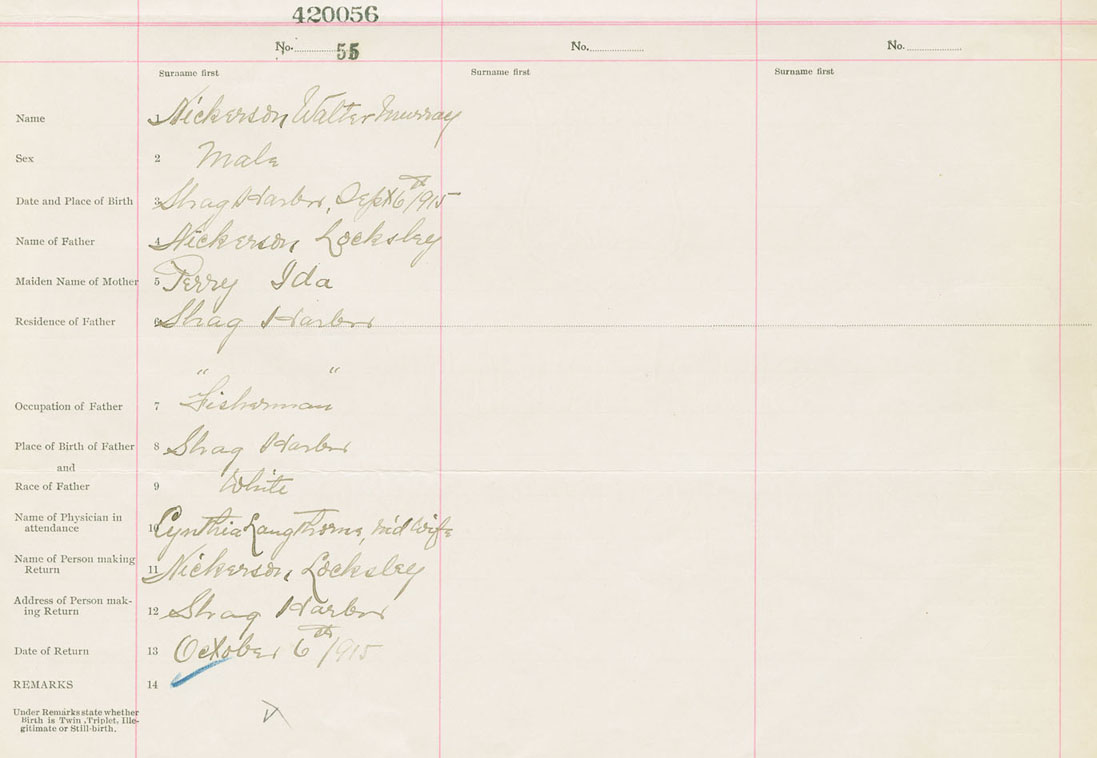 420056
No. 55 No. No.
Surname first Surname first Surname first
Name 1 Nickerson, Walter Murray
Sex 2 Male
Date and Place of Birth 3 Shag Harbor, Sept 6th/1915
Name of Father 4 Nickerson, Locksley
Maiden Name of Mother 5 Perry Ida
Residence of Father 6 Shag Harbor
" "
Occupation of Father 7 Fisherman
Place of Birth of Father 8 Shag Harbor
and
Race of Father 9 White
Name of Physician in
attendance 10 Cynthia Langthorne, Mid Wife
Name of Person making
Return 11 Nickerson, Locksley
Address of Person mak-
ing Return 12 Shag Harbor
Date of Return 13 October 6th/1915
REMARKS 14
Under Remarks state whether
Birth is Twin, Triplet, Ille-
gitimate or Still-birth.